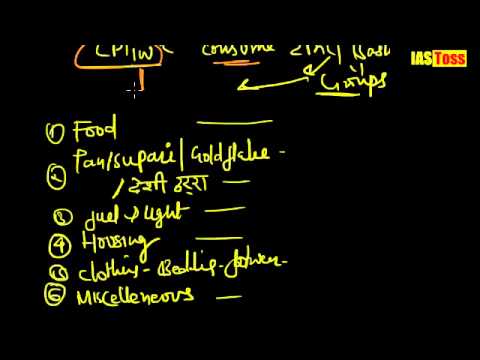 IASToss
CPI IW consume
Groups
① Food
② Pan/supari/Goldflake -
/देशी ठर्रा
③ fuel & light
④ Housing
⑤ clothing - Bedding -
⑥ Miscelleneous